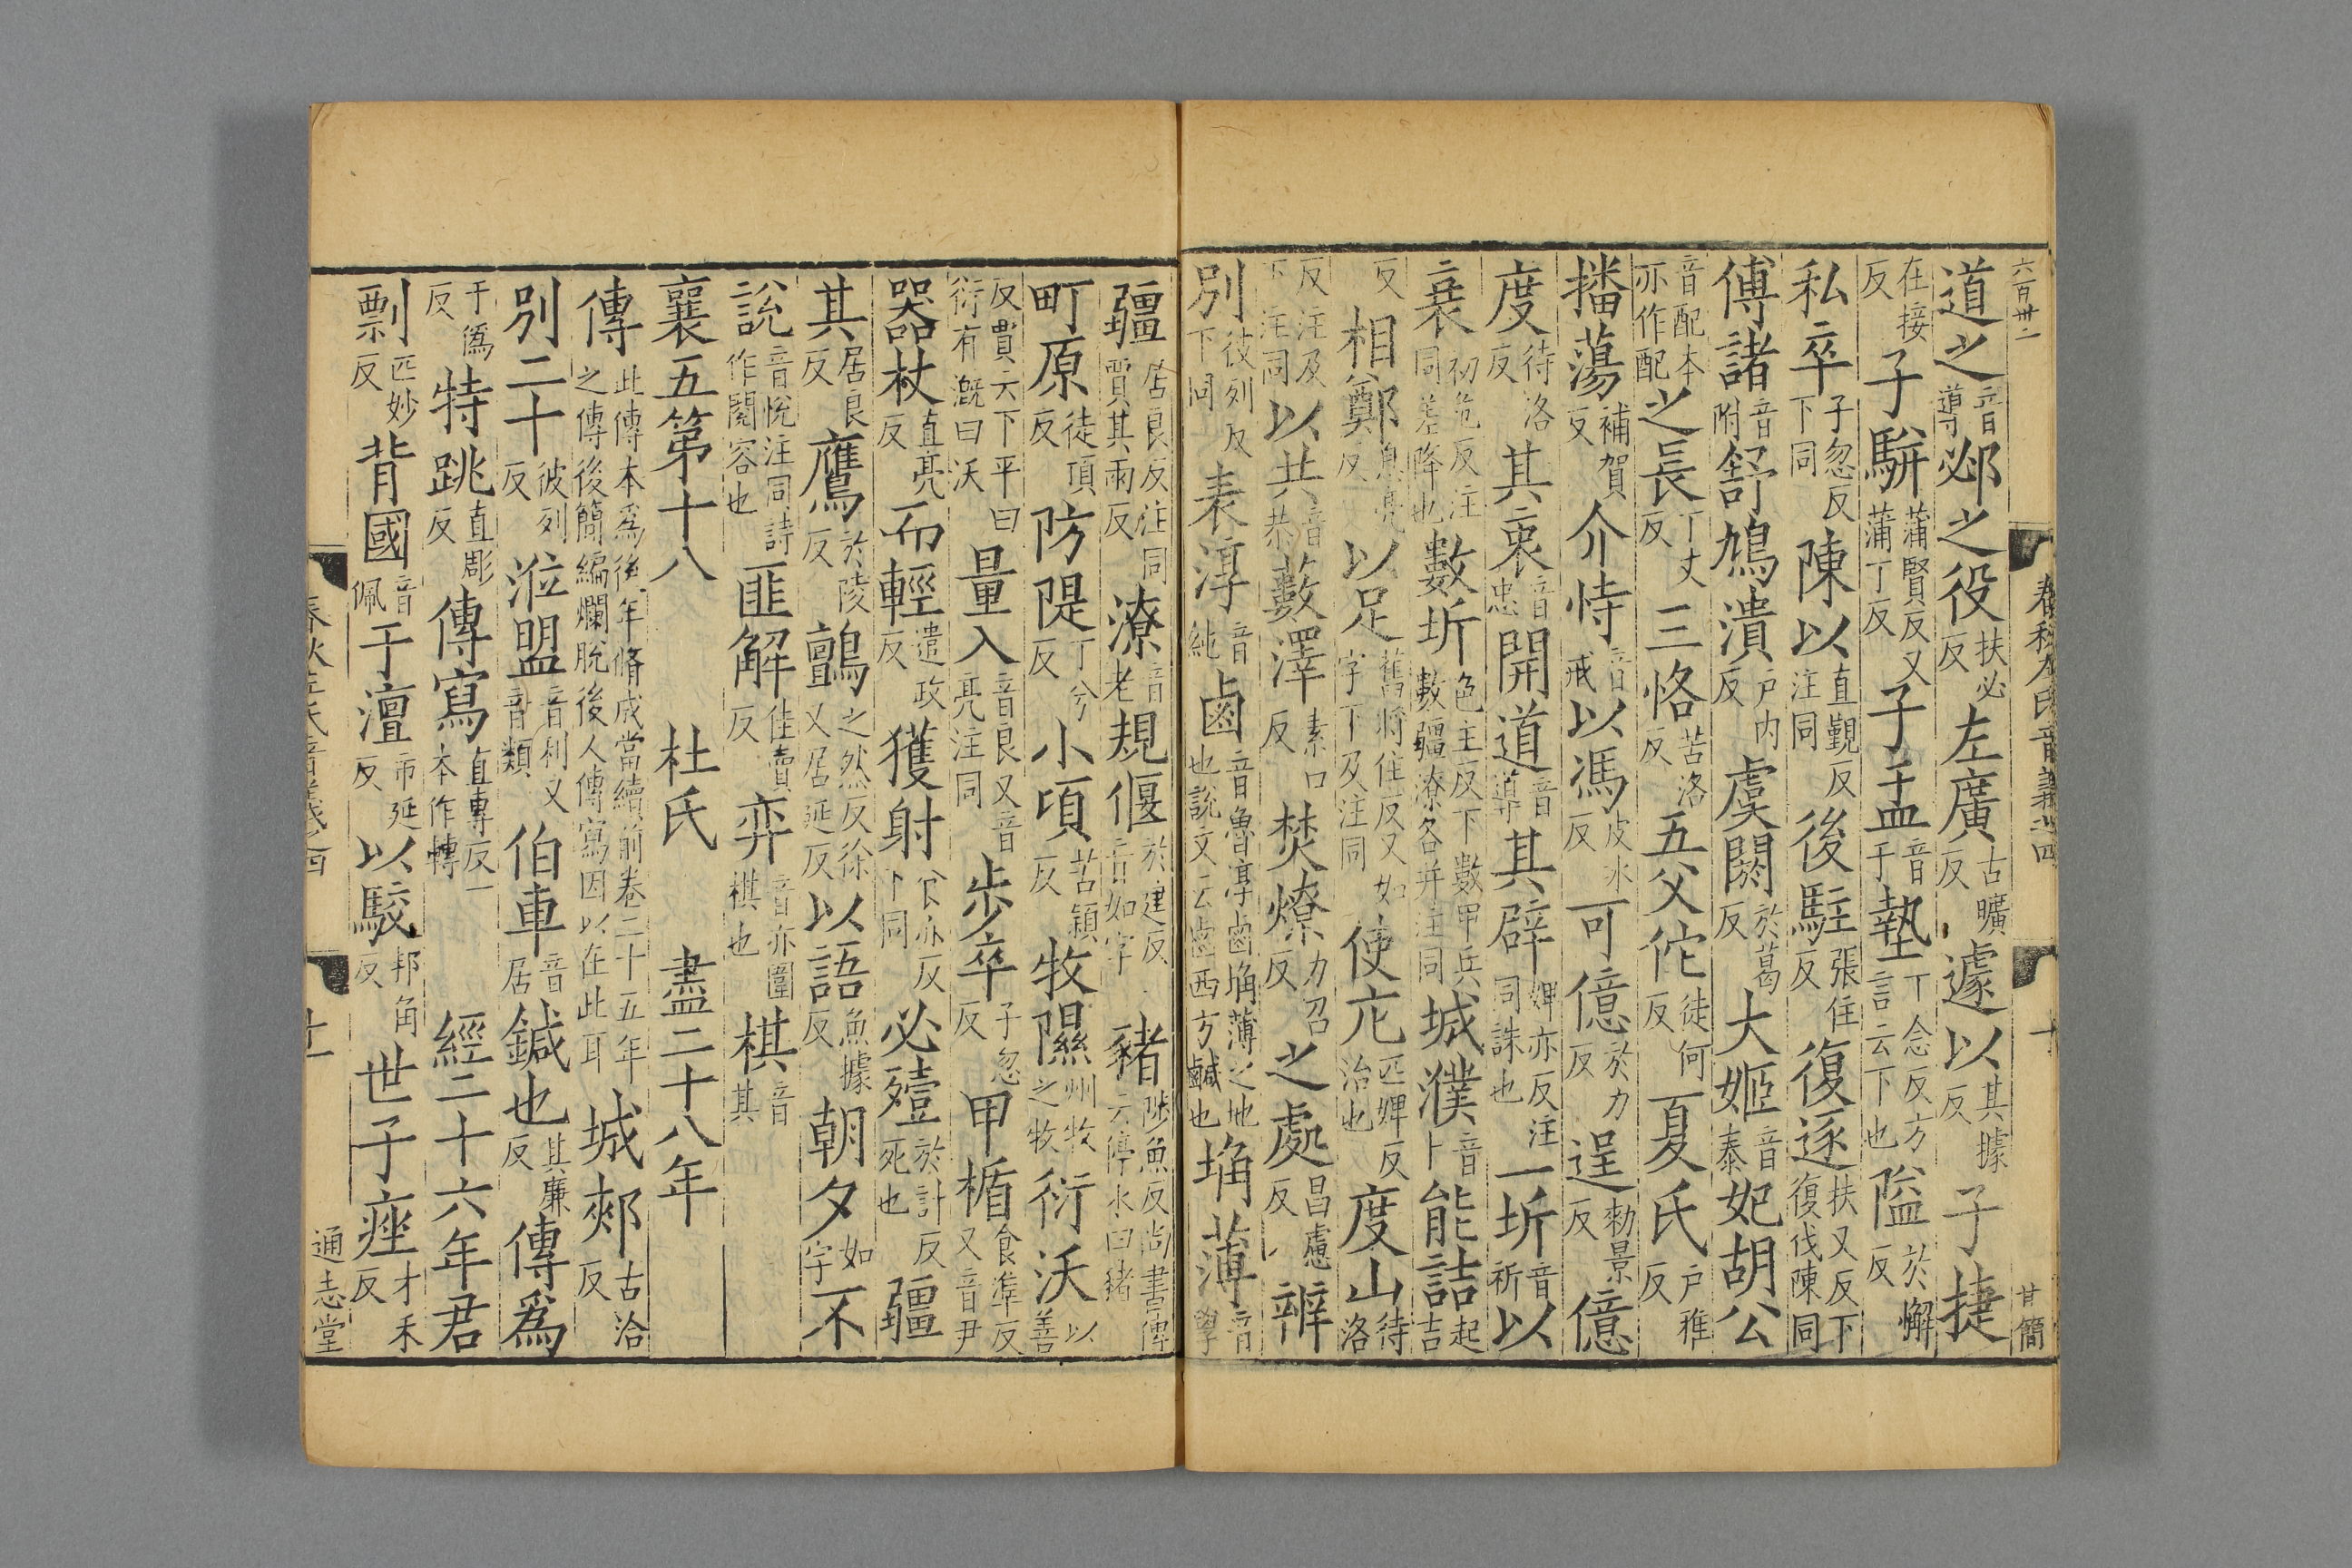 六百卅二 春秋左氏音義之四 十 甘簡
道之音導邲之役扶必反左廣古曠反遽以其據反子捷
在接反子駢蒲賢反又蒲丁反子盂音于墊丁念反方言云下也隘於懈反
私卒子忽反下同陳以直覲反注同後駐張住反復逐扶又反下復伐陳同
傅諸音附舒鳩潰户内反虞閼於葛反大姬音泰妃胡公
音配本亦作配之長丁丈反三恪苦洛反五父佗徒何反夏氏户雅反
播蕩補賀反介恃音戒以馮皮冰反可億於力反逞勑景反億
度待洛反其衷音忠開道音導其辟婢亦反注同誅也一圻音祈以
衰初危反注同差降也數圻色主反下數甲兵數疆潦各并注同城濮音卜能詰起吉
反相鄭息亮反以足舊將住反又如字下及注同使庀匹婢反治也度山待洛
反注及下注同以共音恭藪澤素口反焚燎力召反之處昌慮反辨
別彼列反下同表淳音純鹵音魯淳鹵埆薄之地也說文云鹵西方鹹也埆薄音學
疆居良反注同賈其兩反潦音老規偃於建反一音如字豬陟魚反尚書傳云停水曰豬
町原徒頂反防隄丁兮反小頃苦潁反牧隰州牧之牧衍沃以善
反賈云下平曰衍有溉曰沃量入音良又音亮注同步卒子忽反甲楯食準反又音尹
器杖直亮反而輕遣政反獲射食亦反下同必殪於計反死也疆
其居良反鷹於陵反鸇之然反徐又居延反以語魚據反朝夕如字不
說音悅注同詩作閱容也匪解佳賣反弈音亦圍棋也棋音其
襄五第十八 杜氏 盡二十八年
傳此傳本爲後年脩成當續前卷二十五年之傳後簡編爛脫後人傳寫因以在此耳城郟古洽反
別二十彼列反涖盟音利又音類伯車音居鍼也其廉反傳爲
于僞反特跳直彫反傳寫直專反一本作轉經二十六年君
剽匹妙反背國音佩于澶市延反以駮邦角反世子痤才禾反
春秋左氏音義之四 十一 通志堂